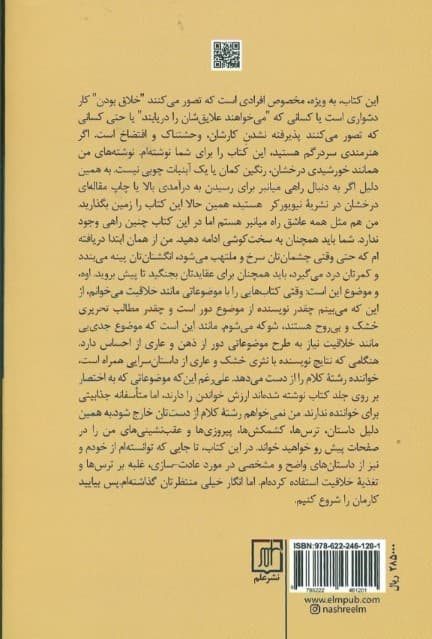 این کتاب، به ویژه، مخصوص افرادی است که تصور می‌کنند "خلاق بودن" کار
دشواری است یا کسانی که "می‌خواهند علایق‌شان را دریابند" یا حتی کسانی
که تصور می‌کنند پذیرفته نشدن کارشان، وحشتناک و افتضاح است. اگر
هنرمندی سردرگم هستید، این کتاب را برای شما نوشته‌ام. نوشته‌های من
همانند خورشیدی درخشان، رنگین کمان یا یک آبنبات چوبی نیست. به همین
دلیل اگر به دنبال راهی میانبر برای رسیدن به درآمدی بالا یا چاپ مقاله‌ای
درخشان در نشریهٔ نیویورکر هستید، همین حالا این کتاب را زمین بگذارید.
من هم مثل همه عاشق راه میانبر هستم اما در این کتاب چنین راهی وجود
ندارد. شما باید همچنان به سخت‌کوشی ادامه دهید. من از همان ابتدا دریافته
ام که حتی وقتی چشمان‌تان سرخ و ملتهب می‌شود، انگشتان‌تان پینه می‌بندد
و کمرتان درد می‌گیرد، باید همچنان برای عقایدتان بجنگید تا پیش بروید. اوه،
و موضوع این است: وقتی کتاب‌هایی را با موضوعاتی مانند خلاقیت می‌خوانم، از
این که می‌بینم چقدر نویسنده از موضوع دور است و چقدر مطالب تحریری
خشک و بی‌روح هستند، شوکه می‌شوم. مانند این است که موضوع جدی‌یی
مانند خلاقیت نیاز به طرح موضوعاتی دور از ذهن و عاری از احساس دارد.
هنگامی که نتایج نویسنده با نثری خشک و عاری از داستان‌سرایی همراه است،
خواننده رشتهٔ کلام را از دست می‌دهد. علی‌رغم این‌که موضوعاتی که به اختصار
بر روی جلد کتاب نوشته شده‌اند ارزش خواندن را دارند، اما متأسفانه جذابیتی
برای خواننده ندارند. من نمی‌خواهم رشتهٔ کلام از دست‌تان خارج شود.به همین
دلیل داستان، ترس‌ها، کشمکش‌ها، پیروزی‌ها و عقب‌نشینی‌های من را در
صفحات پیش رو خواهید خواند. در این کتاب، تا جایی که توانسته‌ام از خودم و
نیز از داستان‌های واضح و مشخصی در مورد عادت-سازی، غلبه بر ترس‌ها و
تغذیهٔ خلاقیت استفاده کرده‌ام. اما انگار خیلی منتظرتان گذاشته‌ام.پس بیایید
کارمان را شروع کنیم.
ISBN:978-622-246-120-1
9 786222 461201
۲۸۵۰۰۰ ریال
نشر علم
www.elmpub.com
nashreelm